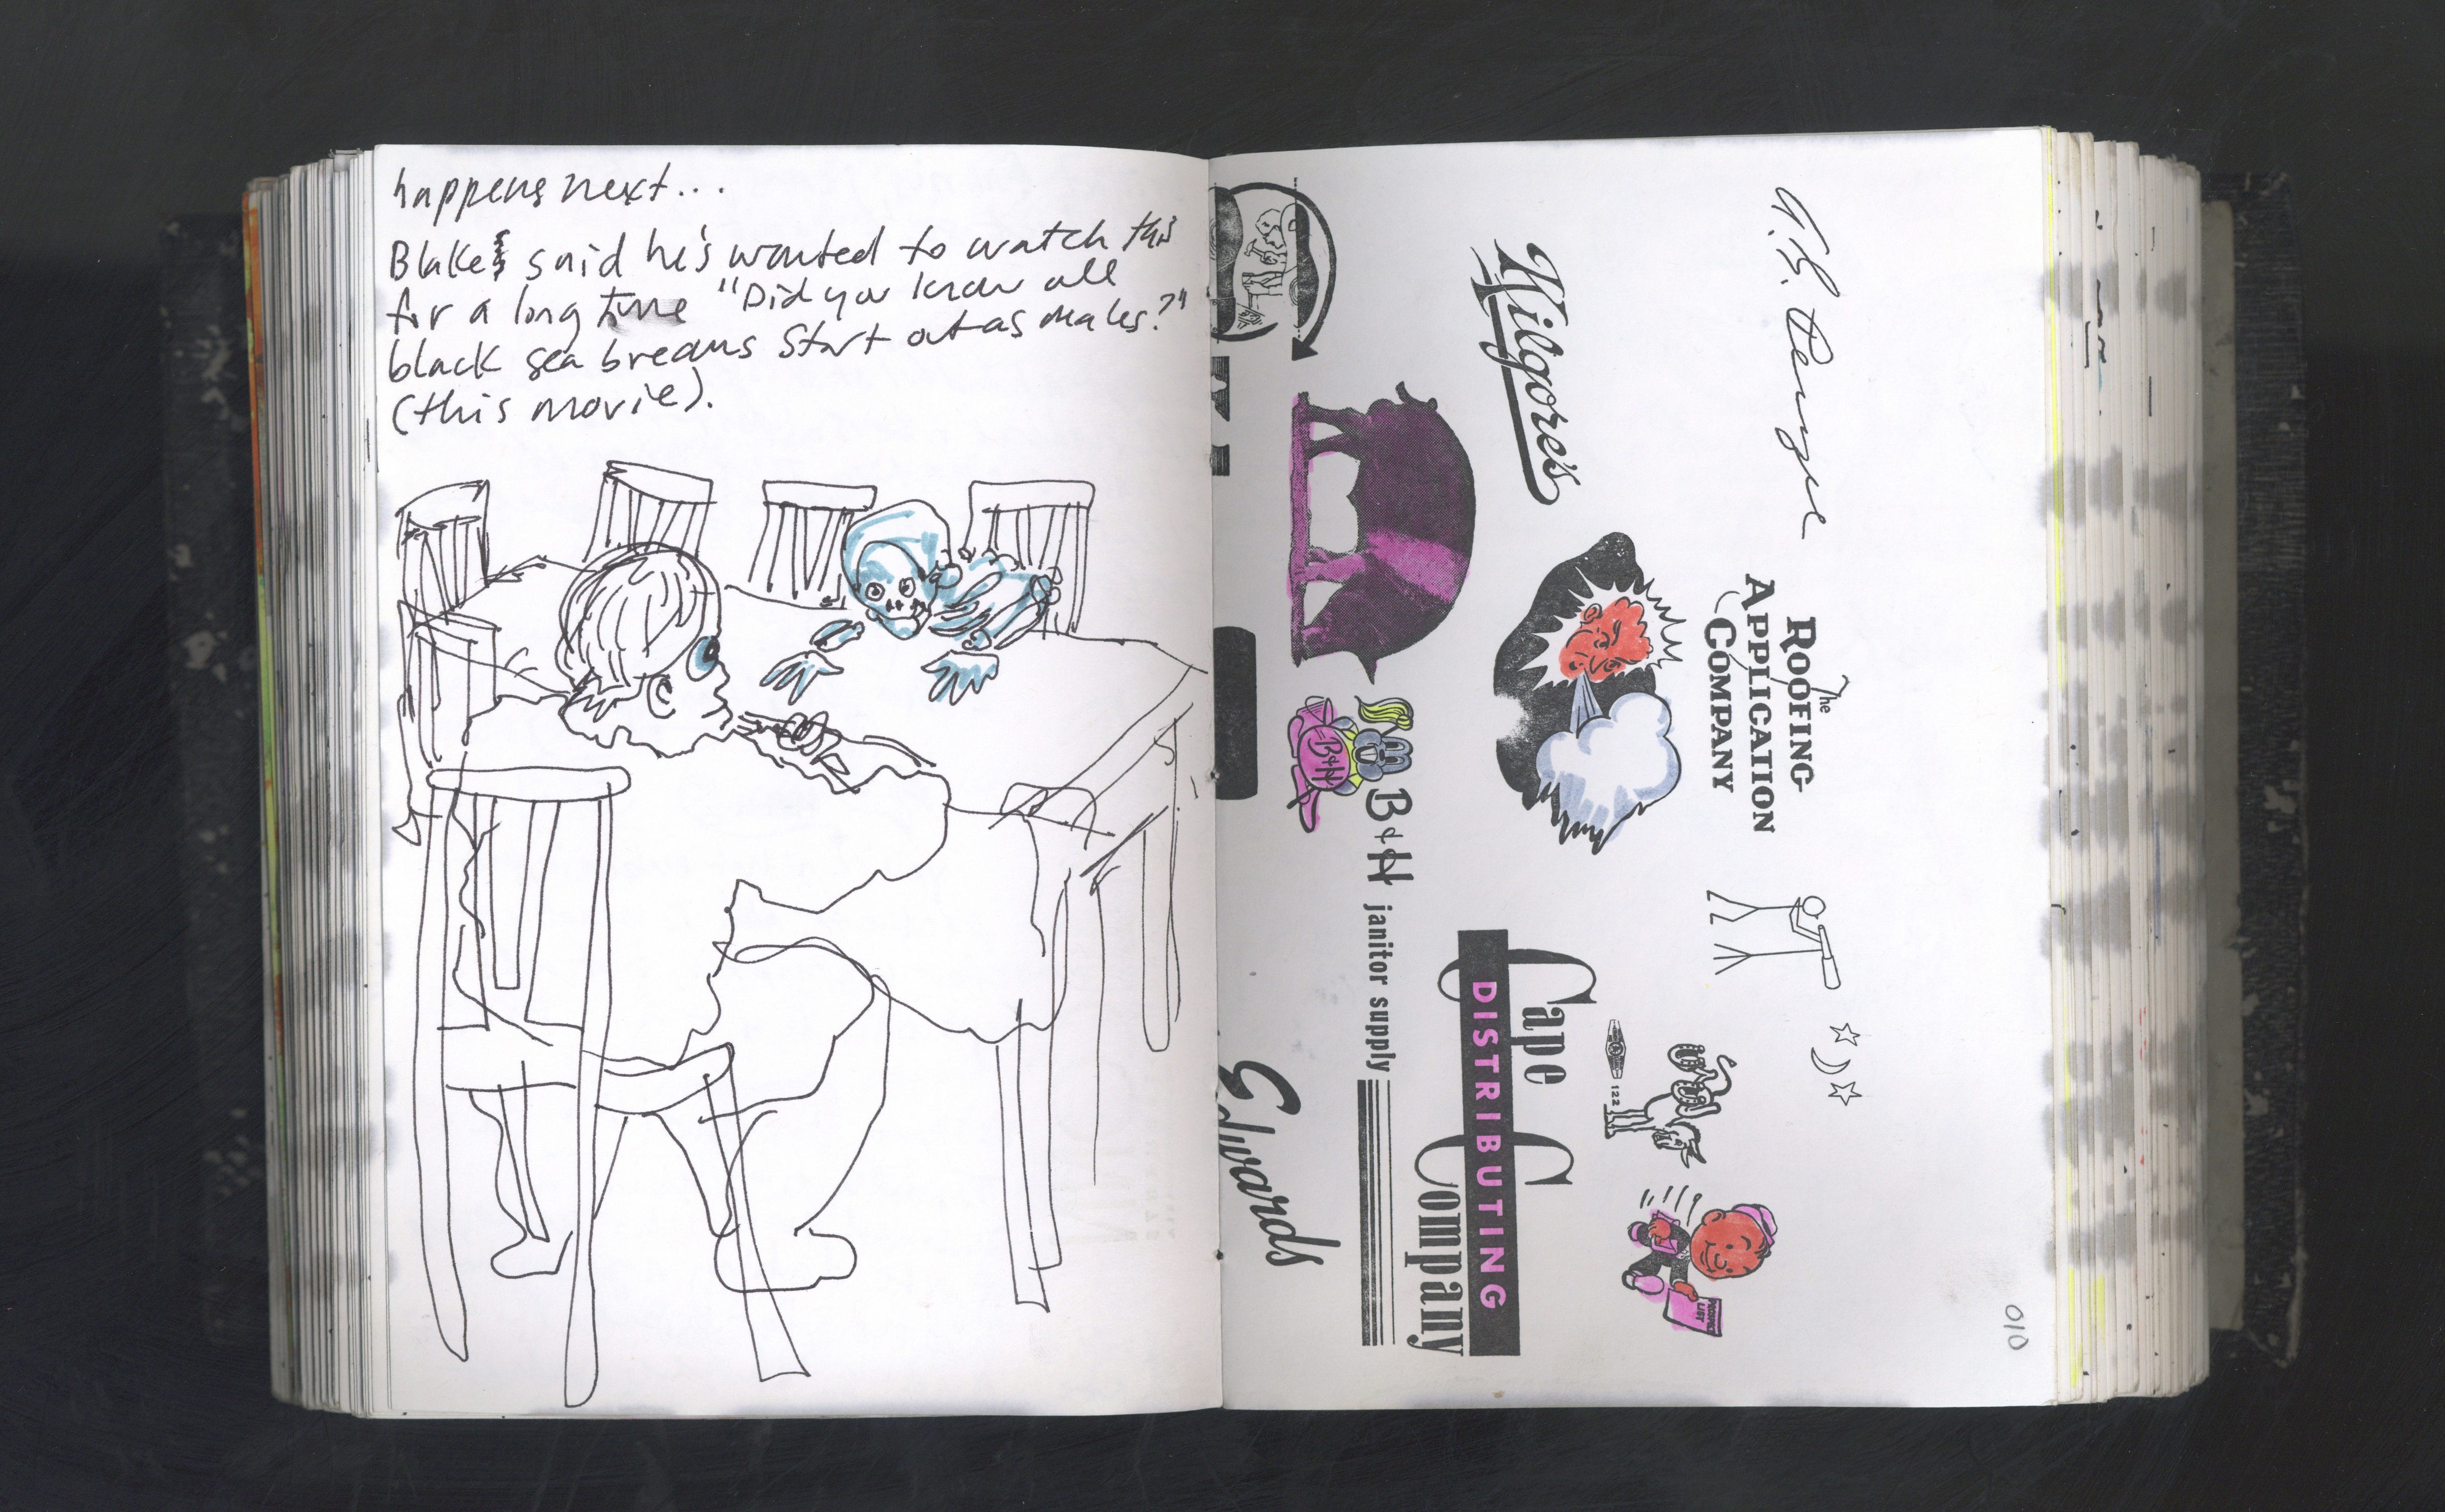 happens next...
Blake said he's wanted to watch this
for a long time "Did you know all
black sea breams start out as males?"
(this movie).
Kilgore's
The
ROOFING
APPLICATION
COMPANY
B&H
B&H janitor supply
Cape
DISTRIBUTING
Company
Edwards
122
PRODUCT
LIST
010